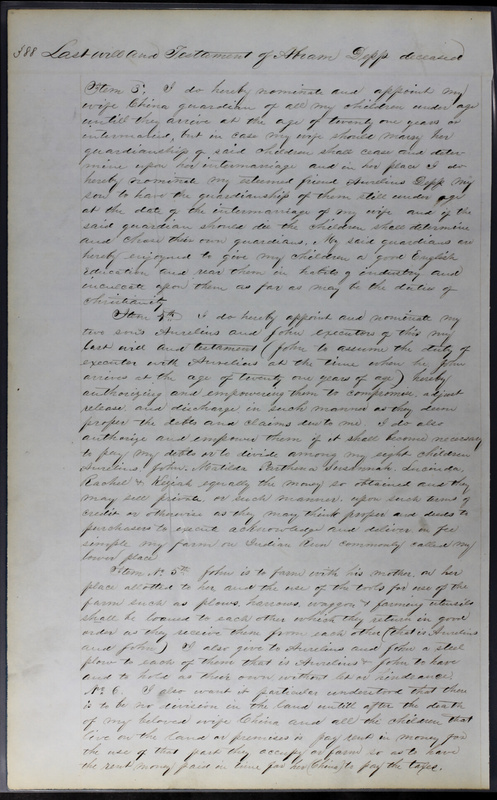 388 Last will and Testament of Abram Depp deceased
Item 3. I do hereby nominate and appoint my
wife China guardian of all my children under age
untill they arrive at the age of twenty one years or
intermarried, but in case my wife should marry her
guardianship of said children shall cease and deter-
mine upon her intermarriage and in her place I do
hereby nominate my esteemed friend Aurelius Depp my
son to have the guardianship of them still under age
at the date of the intermarriage of my wife and if the
said guardian should die the children shall determine
and chose their own guardians. My said guardians are
hereby enjoyned to give my children a good English
education and rear them in habits of industry and
inculcate upon them as far as may be the duties of
Christianity
Item 4th I do hereby appoint and nominate my
two sons Aurelius and John executors of this my
last will and testament (John to assume the duty of
executor with Aurelius at the time when he John
arrives at the age of twenty one years of age) hereby
authorizing and empowering them to compromise, adjust
release and discharge in such manner as they deem
proper the debts and claims due to me. I do also
authorize and empower them if it shall become necessary
to pay my debts or to divide among my eight children
Aurelius, John, Matilda Parthena Susannah, Lucinda,
Rachel & Keziah equally the money so obtained and they
may sell private or such manner upon such terms of
credit or otherwise as they may think proper and deeds to
purchasers to execute acknowledge and deliver in fee
simple my farm on Indian Run commonly called my
lower place
Item No. 5th John is to farm with his mother, on her
place allotted to her and the use of the tools for use of the
farm such as plows, harrows, waggon & farming utensils
shall be loaned to each other which they return in good
order as they receive them from each other (that is Aurelius
and John) I also give to Aurelius and John a steel
plow to each of them that is Aurelius & John to have
and to hold as their own without let or hindrance
No 6. I also want it particular understood that there
is to be no division in the land untill after the death
of my beloved wife China and all the children that
live on the land or premises is pay rent in money for
the use of that part they occupy or farm so as to have
the rent money paid in time for her (China) to pay the taxes.